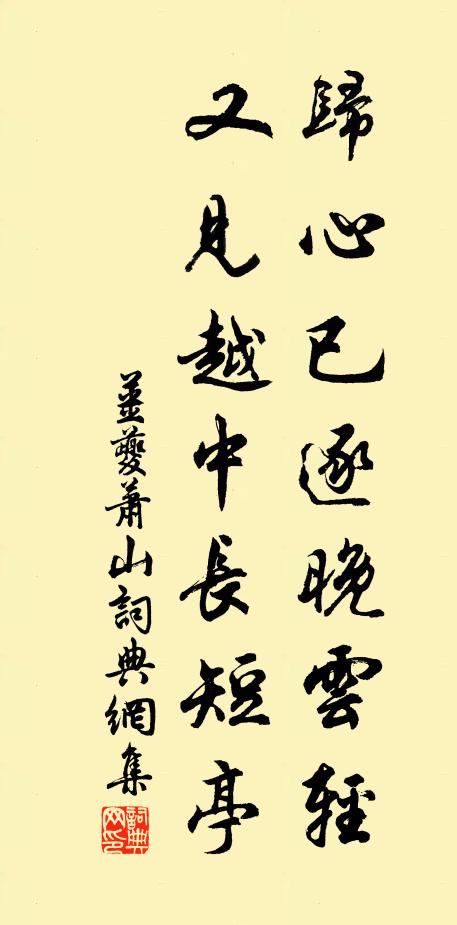 歸心已逐晚雲輕
又見越中長短亭
姜夔蕭山詞典網集
詞典
网印